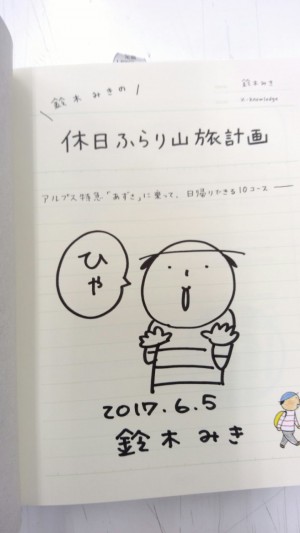 鈴木みきの
鈴木みき
X-knowledge
休日ふらり山旅計画
アルプス特急「あずさ」に乗って、日帰りできる10コース
ひゃ
2017.6.5
鈴木みき